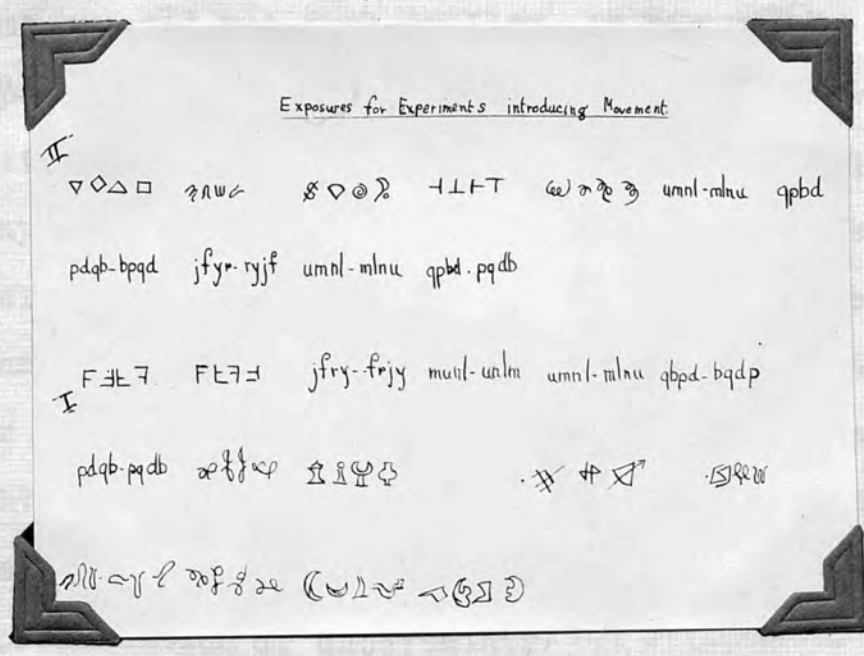 Exposures for Experiments introducing Movement
II
umnl-mlnu qpbd
pdqb-bpqd jfyr-ryjf umnl-mlnu qpbd-pqdb
jfry--frjy munl-unlm umnl-mlnu qbpd-bqdp
I
pdqb-pqdb